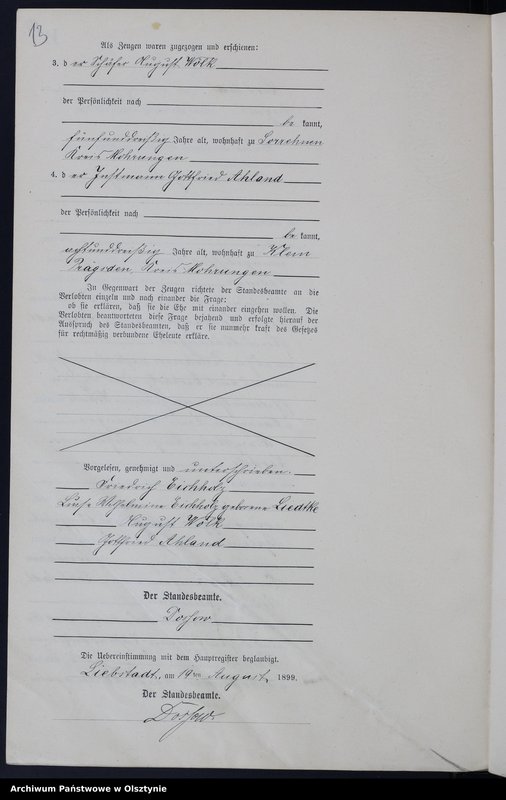 13
Als Zeugen waren zugezogen und erschienen:
3. d er Schäfer August Wölk
der Persönlichkeit nach
be kannt,
fünfunddreißig Jahre alt, wohnhaft zu Sorrehnen
Kreis Mohrungen
4. d er Instmann Gottfried Ahland
der Persönlichkeit nach
be kannt,
achtunddreißig Jahre alt, wohnhaft zu Klein
Prägsden, Kreis Mohrungen
In Gegenwart der Zeugen richtete der Standesbeamte an die
Verlobten einzeln und nach einander die Frage:
ob sie erklären, daß sie die Ehe mit einander eingehen wollen. Die
Verlobten beantworteten diese Frage bejahend und erfolgte hierauf der
Ausspruch des Standesbeamten, daß er sie nunmehr kraft des Gesetzes
für rechtmäßig verbundene Eheleute erkläre.
Vorgelesen, genehmigt und unterschrieben.
Friedrich Eichholz
Wilhelmine Eichholz geborene Liedtke
August Wölk
Gottfried Ahland
Der Standesbeamte.
Die Uebereinstimmung mit dem Hauptregister beglaubigt.
Liebstadt, am 19ten August 1899.
Der Standesbeamte.
Archiwum Państwowe w Olsztynie